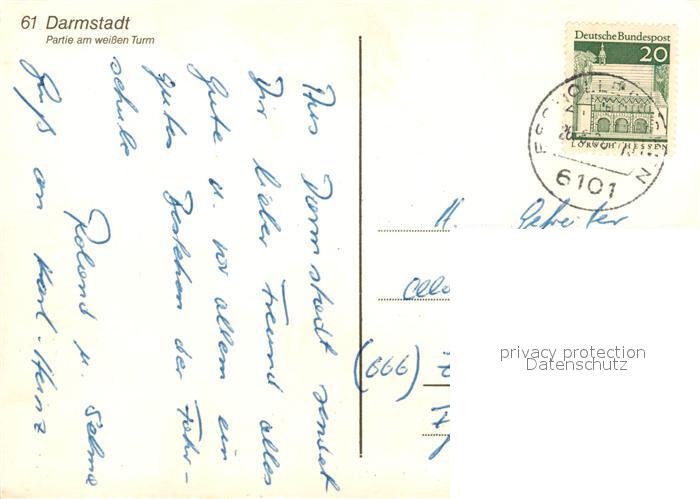 61 Darmstadt
Partie am weißen Turm
Deutsche Bundespost
20
LORSCH/HESSEN
6101
Aus Darmstadt sendet
Dir lieber Freund alles
Gute u. vor allem ein
gutes Bestehen der Fahr-
schule
Roland u. Selma
Gruß an Karl-Heinz.
H. Gefreiter
(666)
privacy protection
Datenschutz